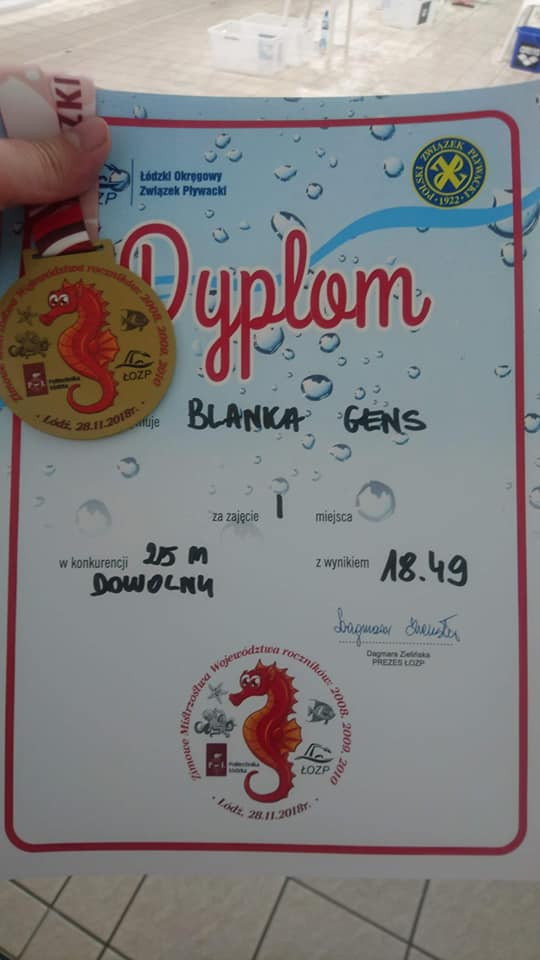 ZKI
ŁOZP
Łódzki Okręgowy
Związek Pływacki
POLSKI ZWIĄZEK PŁYWACKI
1922
Dyplom
Zimowe Mistrzostwa Województwa roczników: 2008, 2009, 2010
Politechnika
Łódzka
ŁOZP
Łódź, 28.11.2018r.
muje BLANKA GENS
za zajęcie I miejsca
w konkurencji 25 M
DOWOLNY
z wynikiem 18.49
Dagmara Zielińska
PREZES ŁOZP
Zimowe Mistrzostwa Województwa roczników: 2008, 2009, 2010
Politechnika
Łódzka
ŁOZP
Łódź, 28.11.2018r.